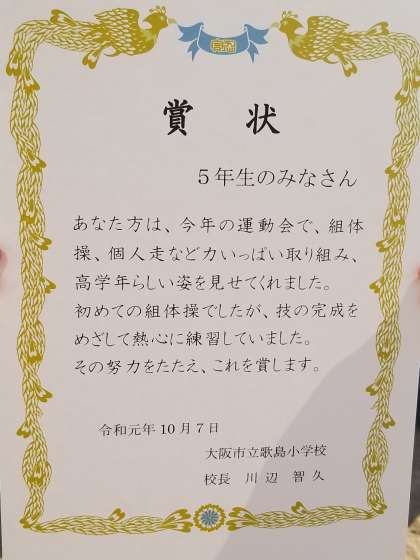 賞状
5年生のみなさん
あなた方は、今年の運動会で、組体
操、個人走など力いっぱい取り組み、
高学年らしい姿を見せてくれました。
初めての組体操でしたが、技の完成を
めざして熱心に練習していました。
その努力をたたえ、これを賞します。
令和元年10月7日
大阪市立歌島小学校
校長 川辺 智久